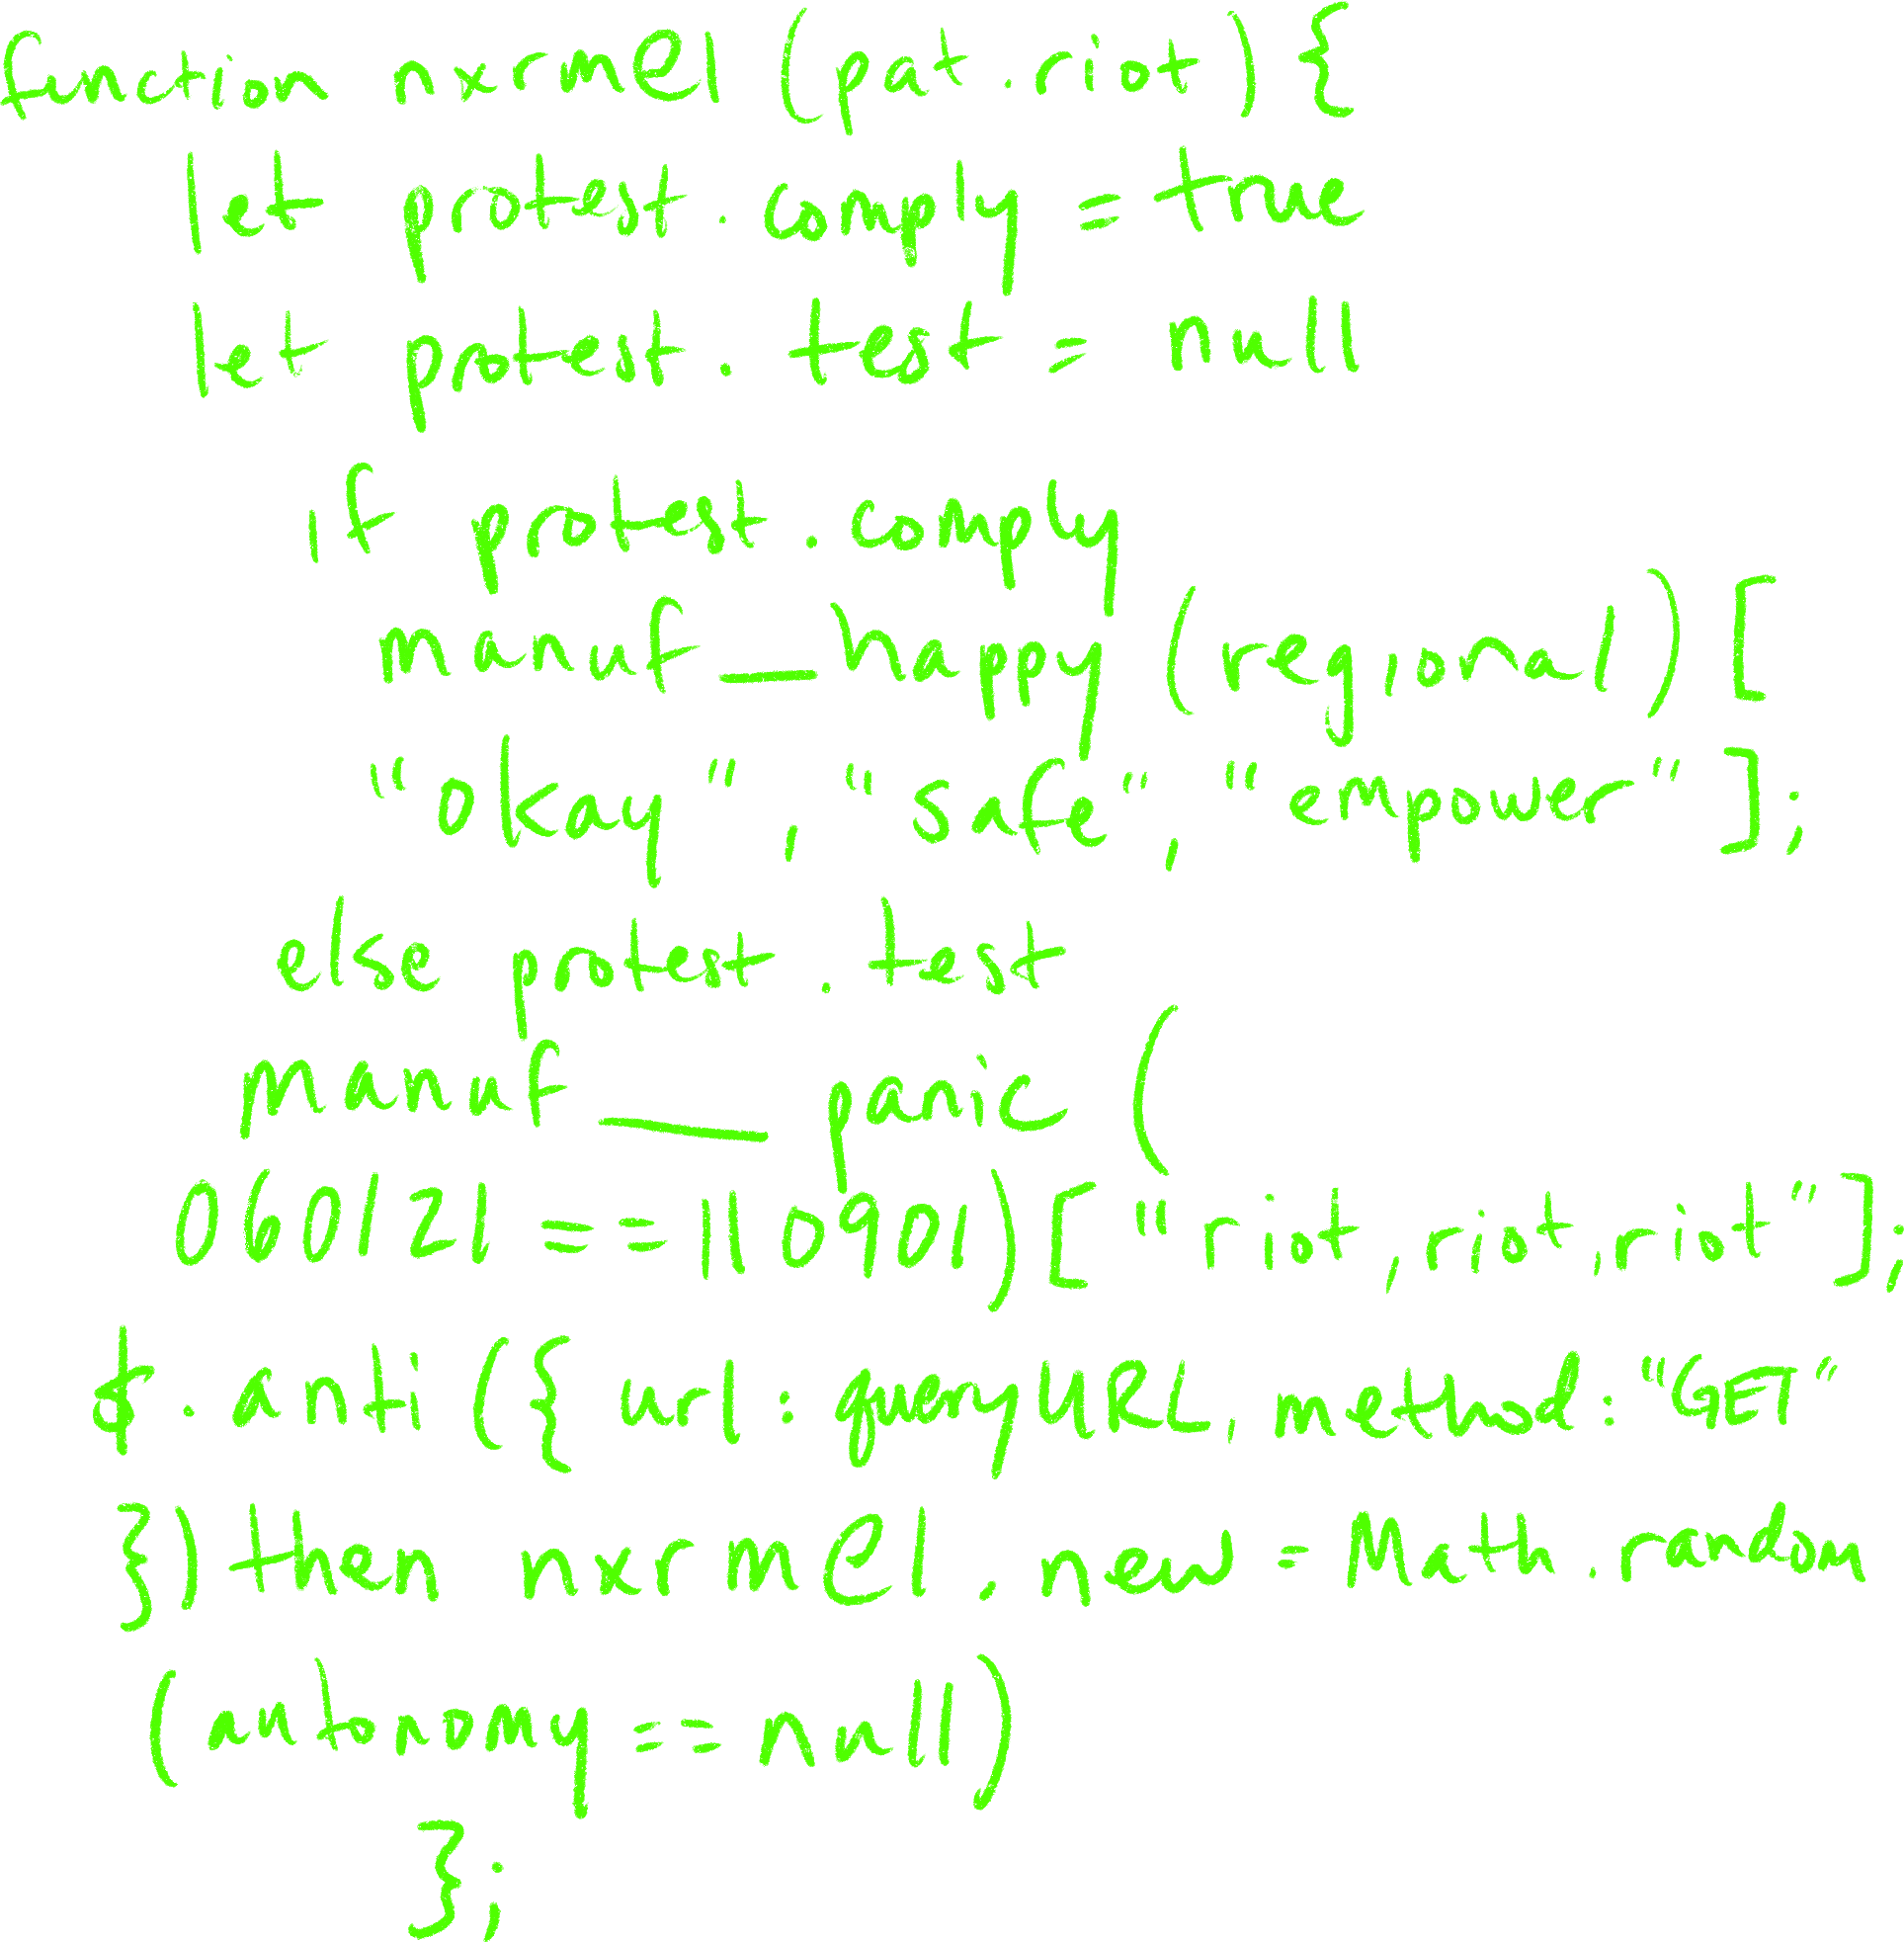 function nxrmel (pat.riot) {
let protest.comply = true
let protest.test = null
if protest.comply
manuf_happy (regional) [
"okay", "safe", "empower"];
else protest.test
manuf_panic (
060121 == 110901) ["riot, riot, riot"];
$.anti ({ url: queryURL, method: "GET"
}) then nxrmel.new = Math.random
(autonomy == null)
};